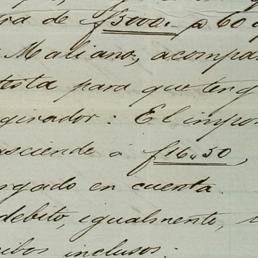 de ƒ3000.- a 60
Maliano, acompa
para que ten
girador: El impor
asciende á ƒ16,50
rgado en cuenta.
debito, igualmente,
inclusos: